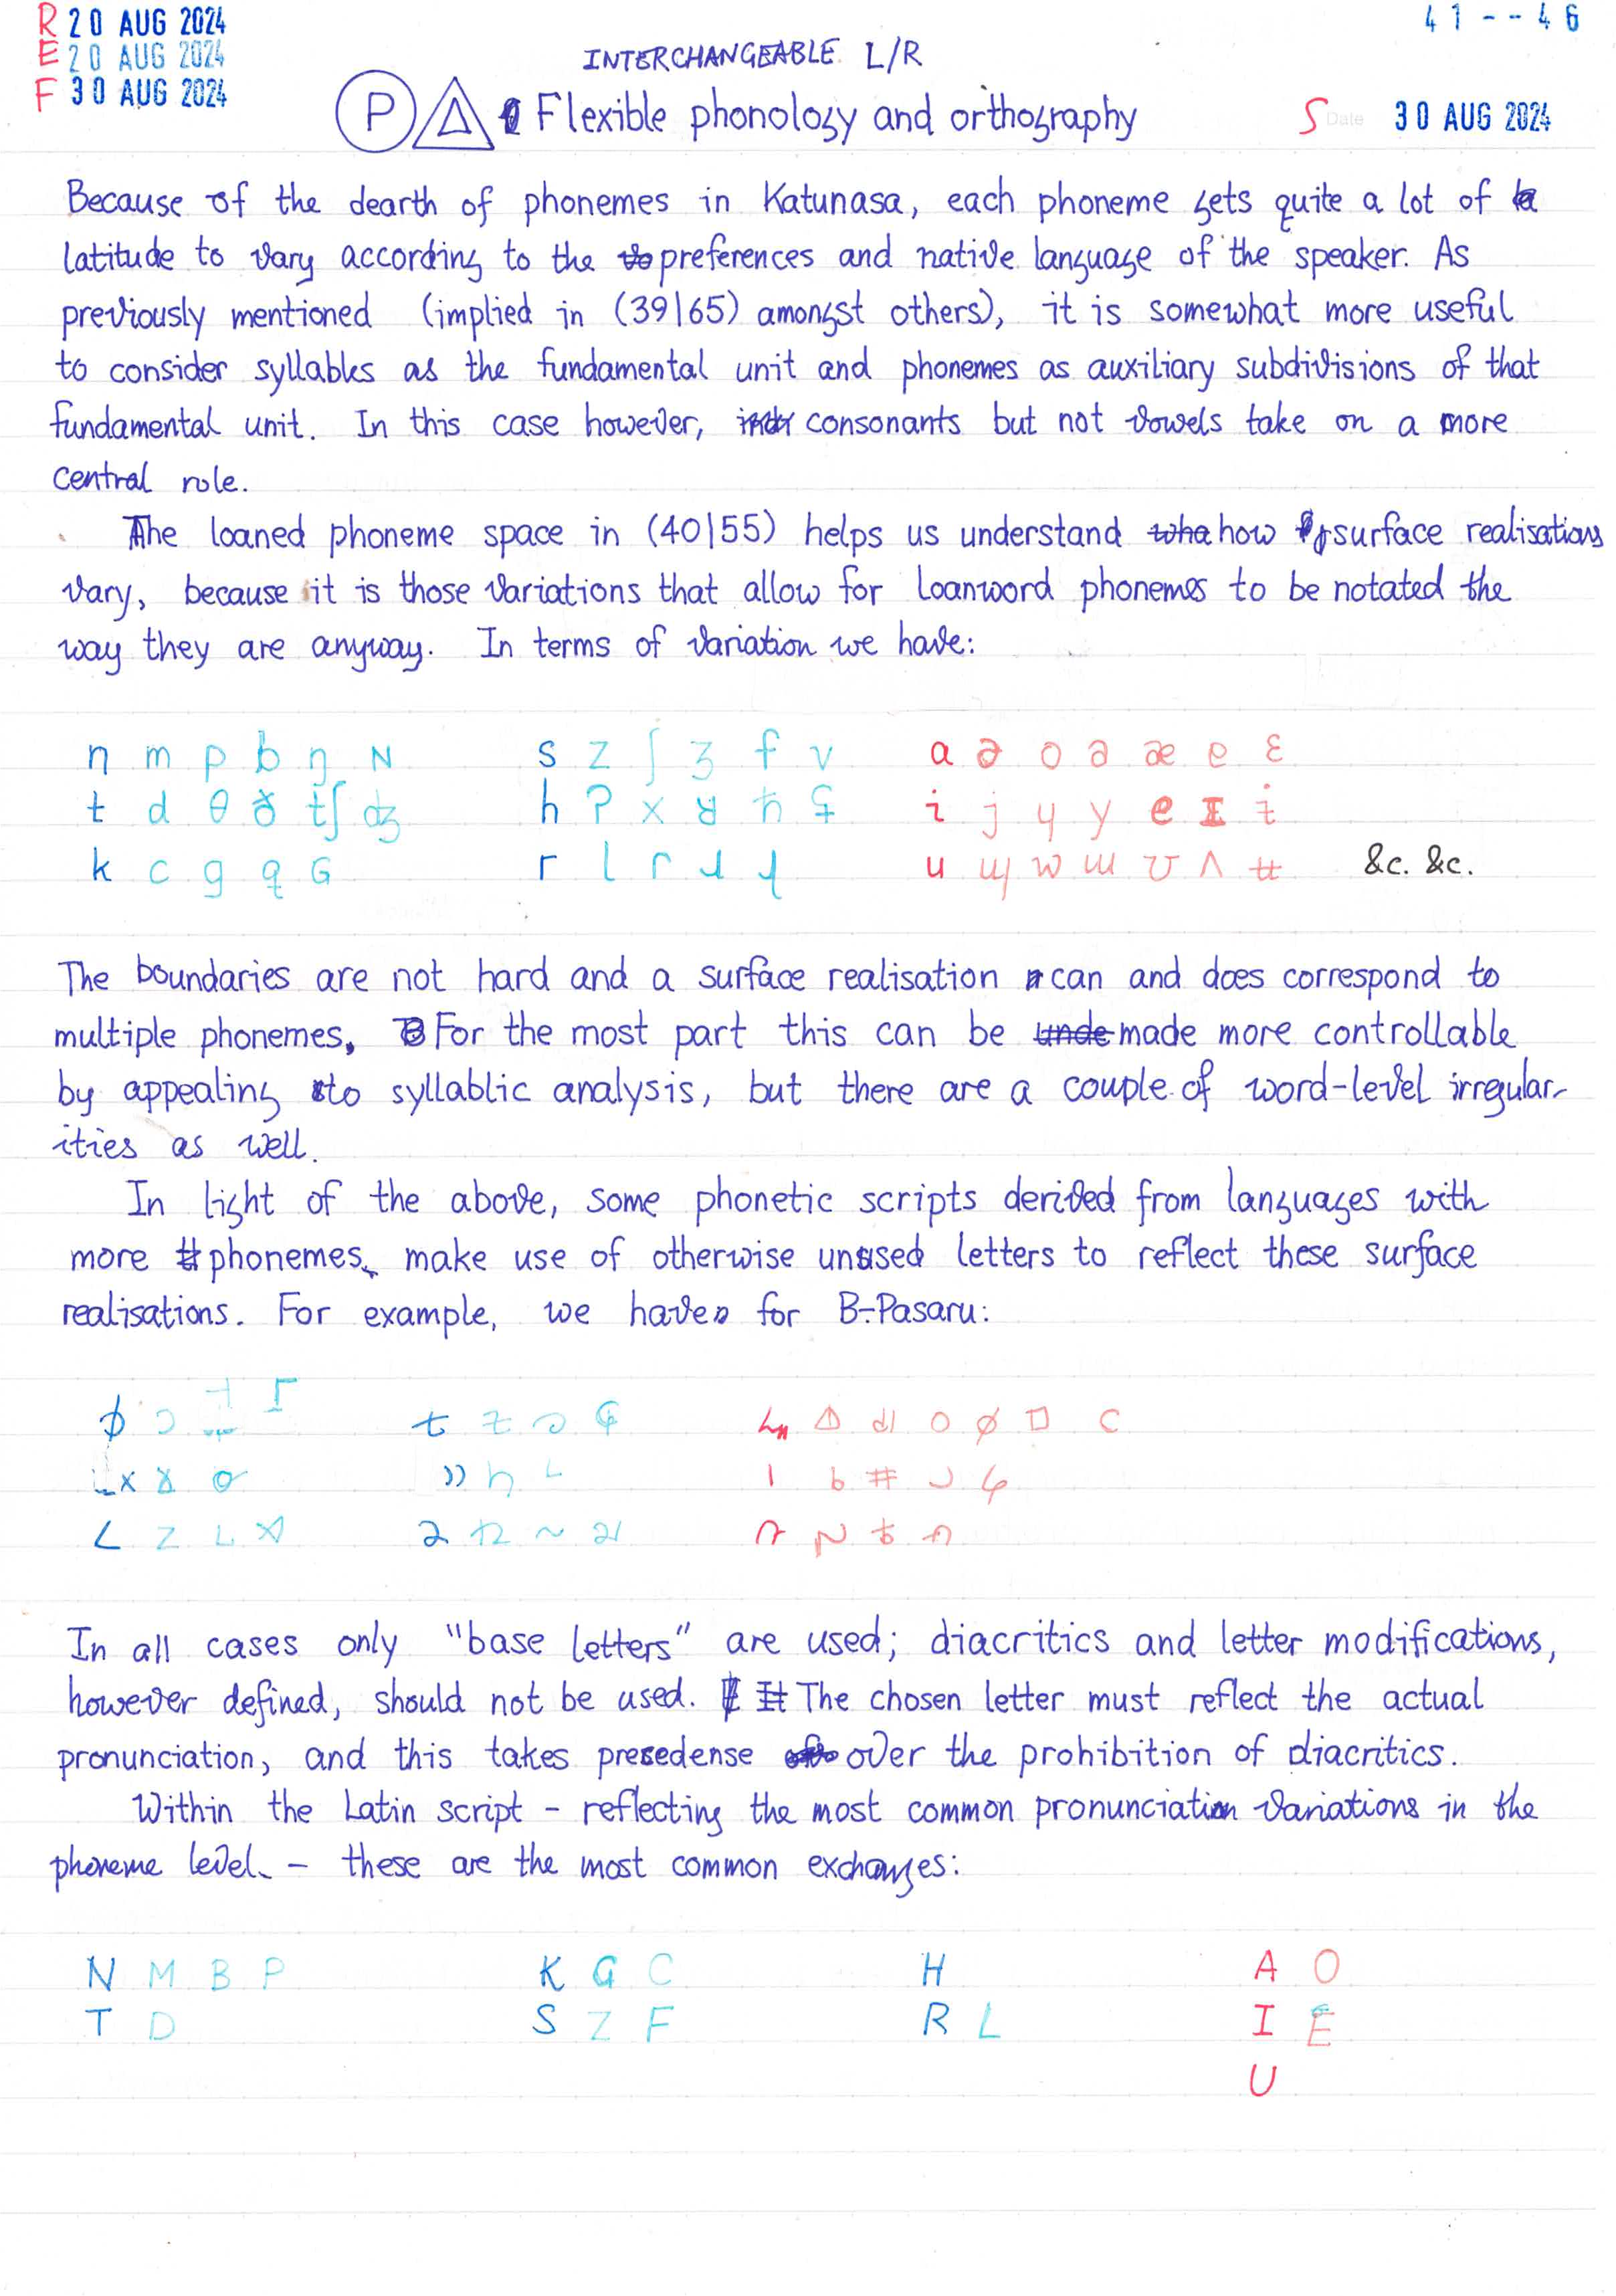 R 20 AUG 2024
E 20 AUG 2024
F 30 AUG 2024
41--46
INTERCHANGEABLE L/R
P Δ Flexible phonology and orthography
S Date 30 AUG 2024
Because of the dearth of phonemes in Katunasa, each phoneme gets quite a lot of
latitude to vary according to the preferences and native language of the speaker. As
previously mentioned (implied in (39|65) amongst others), it is somewhat more useful
to consider syllables as the fundamental unit and phonemes as auxiliary subdivisions of that
fundamental unit. In this case however, consonants but not vowels take on a more
central role.
The loaned phoneme space in (40|55) helps us understand how surface realisations
vary, because it is those variations that allow for loanword phonemes to be notated the
way they are anyway. In terms of variation we have:
n m p b ŋ N s z ʃ ʒ f v a ə o æ e ɛ
t d θ ð tʃ dʒ h ʔ x ħ i j ɥ y e ɪ ɨ
k c g q G r l ɾ ɹ u ɰ w ɯ ʊ ʌ ʉ &c. &c.
The boundaries are not hard and a surface realisation can and does correspond to
multiple phonemes. For the most part this can be made more controllable
by appealing to syllablic analysis, but there are a couple of word-level irregular-
ities as well.
In light of the above, some phonetic scripts derived from languages with
more phonemes make use of otherwise unused letters to reflect these surface
realisations. For example, we have for B-Pasaru:
In all cases only "base letters" are used; diacritics and letter modifications,
however defined, should not be used. The chosen letter must reflect the actual
pronunciation, and this takes presedense over the prohibition of diacritics.
Within the Latin script – reflecting the most common pronunciation variations in the
phoneme level – these are the most common exchanges:
N M B P K G C H A O
T D S Z F R L I E
U